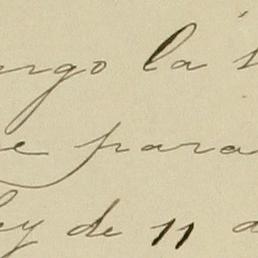 ngo la
e para
ley de 11